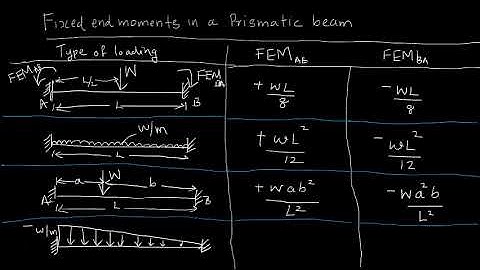 Fixed end moments in a Prismatic beam
Type of loading FEM_AB FEM_BA
FEM_AB L/2 W FEM_BA
A L B
+WL/8 -WL/8
w/m
L
+wL²/12 -wL²/12
a W b
A L B
+Wab²/L² -Wa²b/L²
w/m